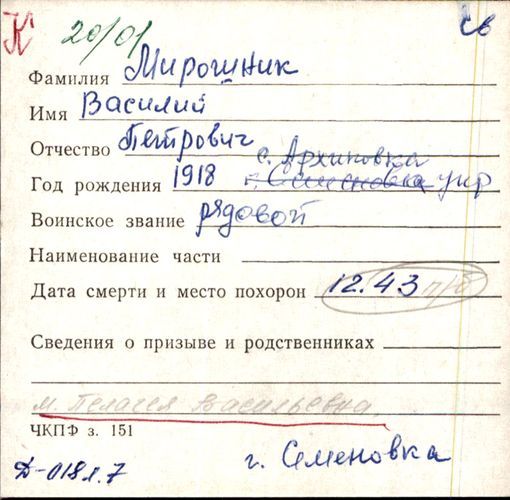 К 20/01 св
Фамилия Мирошник
Имя Василий
Отчество Петрович
с. Архиповка
Год рождения 1918 г. Семеновка укр
Воинское звание рядовой
Наименование части
Дата смерти и место похорон 12.43 п/б
Сведения о призыве и родственниках
м Пелагея Васильевна
ЧКПФ з. 151
г. Семеновка
Д-018 л. 7